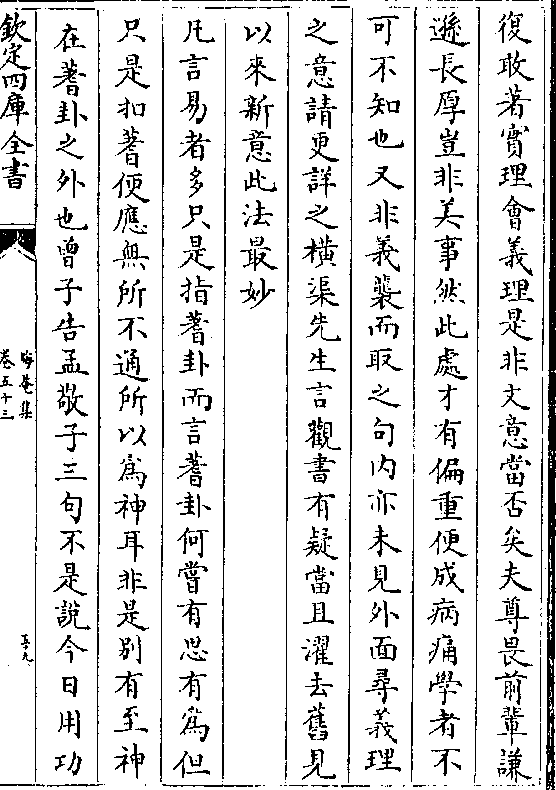 復敢著實理會義理是非文意當否矣夫尊畏前輩謙
遜長厚豈非美事然此處才有偏重便成病痛學者不
可不知也又非義襲而取之句内亦未見外面尋義理
之意請更詳之橫渠先生言觀書有疑當且濯去舊見
以來新意此法最妙
凡言易者多只是指蓍卦而言蓍卦何嘗有思有為但
只是扣著便應無所不通所以為神耳非是别有至神
在蓍卦之外也曾子告孟敬子三句不是說今日用功
欽定四庫全書
晦菴集
卷五十三